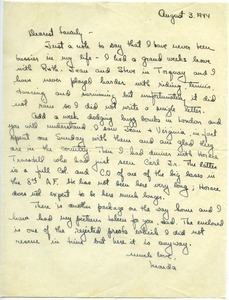 August 3, 1944
Dearest Family -
Just a note to say that I have never been
busier in my life - I had a grand weeks leave
with Ruth, Jean and Steve in Torquay and I
have never played harder with riding, tennis,
dancing and swimming, but unfortunately it did
rain so I did not write a single letter.
Add a week dodging buzz bombs in London and
you will understand. I saw Jean & Virginia, in fact
spent Sunday with them and am glad they
are in the country. Then I had dinner with Horace
who had just seen Carl Jr. The latter
is a full Col. and C.O. of one of the big bases in
the 8th A.F. He has not been here very long; Horace
does not expect to be here much longer.
There is another package on the way home and I
have had my pictures taken for you, said. The enclosed
is one of the rejected proofs which I did not
in time but here it is anyway.
Much love,